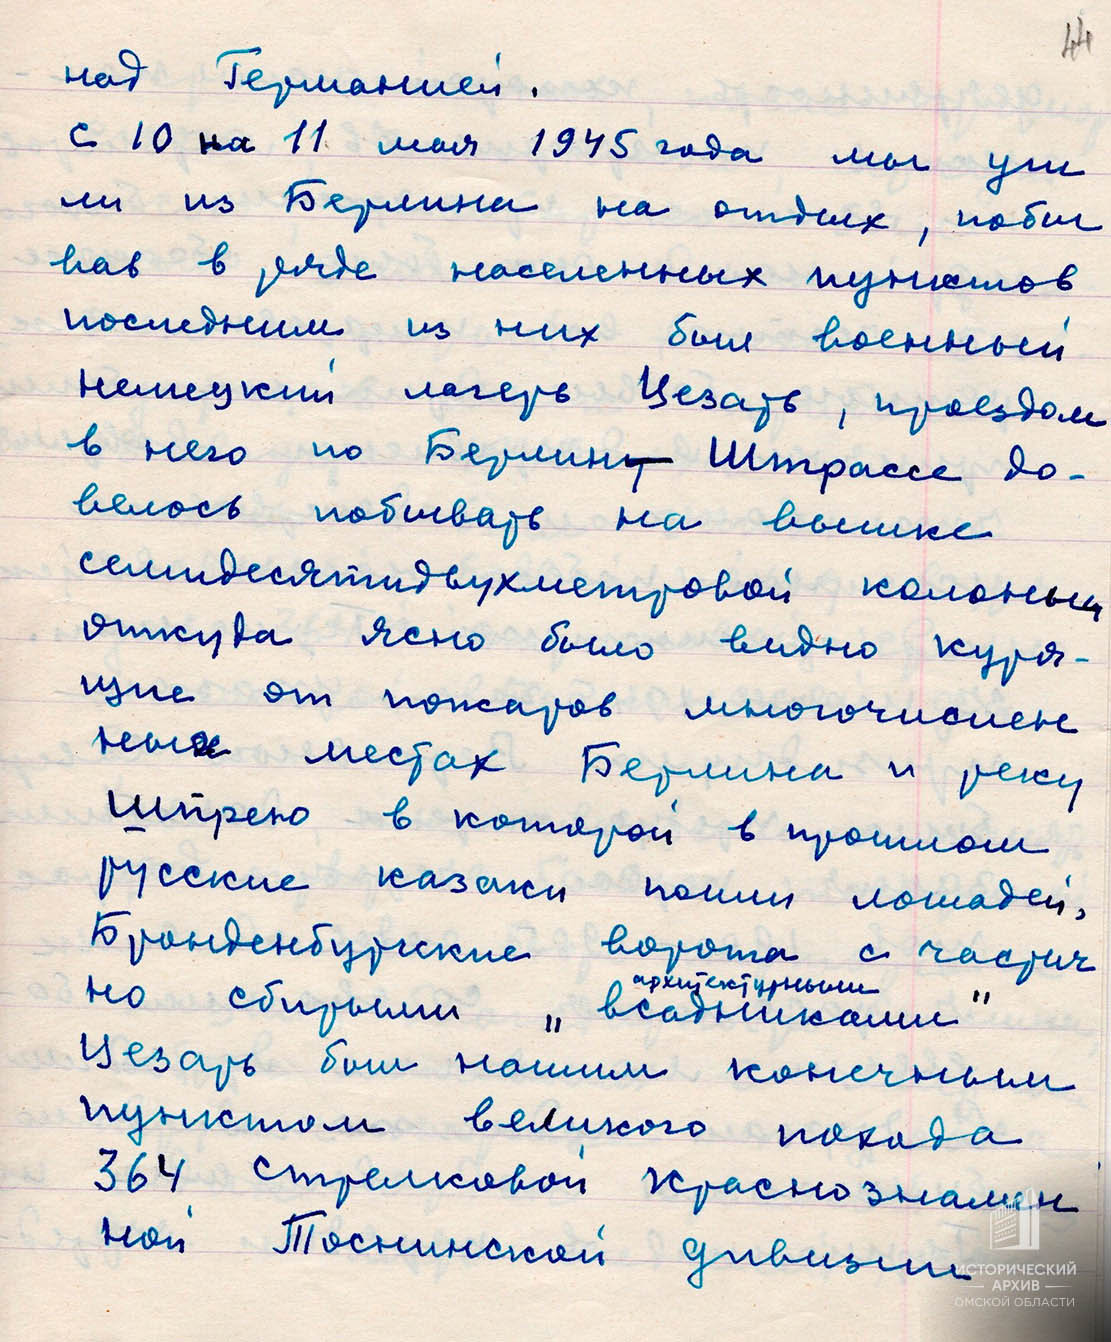 44
над Германией.
с 10 на 11 мая 1945 года мы уш
ли из Берлина на отдых, побы
вав в ряде населенных пунктов
последним из них был военный
немецкий лагерь Цезарь, проездом
в него по Берлин – Штрассе до-
велось побывать на вышке
семидесятидвухметровой колонны
откуда ясно было видно куря-
щие от пожаров многочислен
ных местах Берлина и реку
Шпрею в которой в прошлом
русские казаки поили лошадей,
Бранденбургские ворота с частич
архитектурными
но сбитыми „ всадниками "
Цезарь был нашим конечным
пунктом великого похода
364 стрелковой краснознамен
ной Тоснинской дивизии
ИСТОРИЧЕСКИЙ
АРХИВ
ОМСКОЙ ОБЛАСТИ